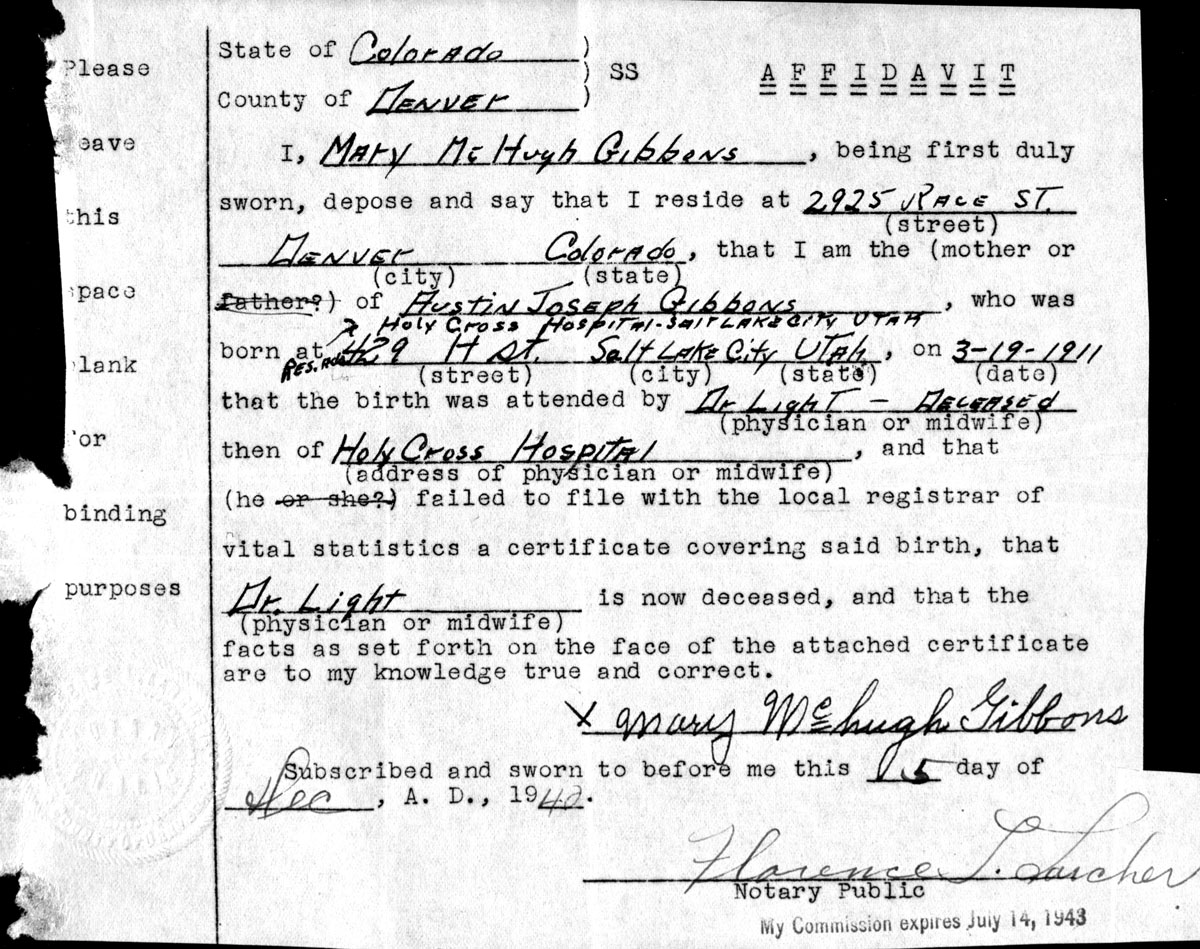 State of Colorado )
) SS A F F I D A V I T
County of Denver )
I, Mary McHugh Gibbons, being first duly
sworn, depose and say that I reside at 2925 Race St.
(street)
Denver Colorado, that I am the (mother or
(city) (state)
father?) of Austin Joseph Gibbons, who was
Holy Cross Hospital - Salt Lake City Utah
born at 429 H St. Salt Lake City Utah, on 3-19-1911
Res.
(street) (city) (state) (date)
that the birth was attended by Dr Light - Deceased
(physician or midwife)
then of Holy Cross Hospital, and that
(address of physician or midwife)
(he or she?) failed to file with the local registrar of
vital statistics a certificate covering said birth, that
Dr. Light is now deceased, and that the
(physician or midwife)
facts as set forth on the face of the attached certificate
are to my knowledge true and correct.
X Mary McHugh Gibbons
Subscribed and sworn to before me this 15 day of
Dec, A. D., 1942.
Florence L.
Notary Public
My Commission expires July 14, 1943
Please
eave
this
space
lank
for
binding
purposes